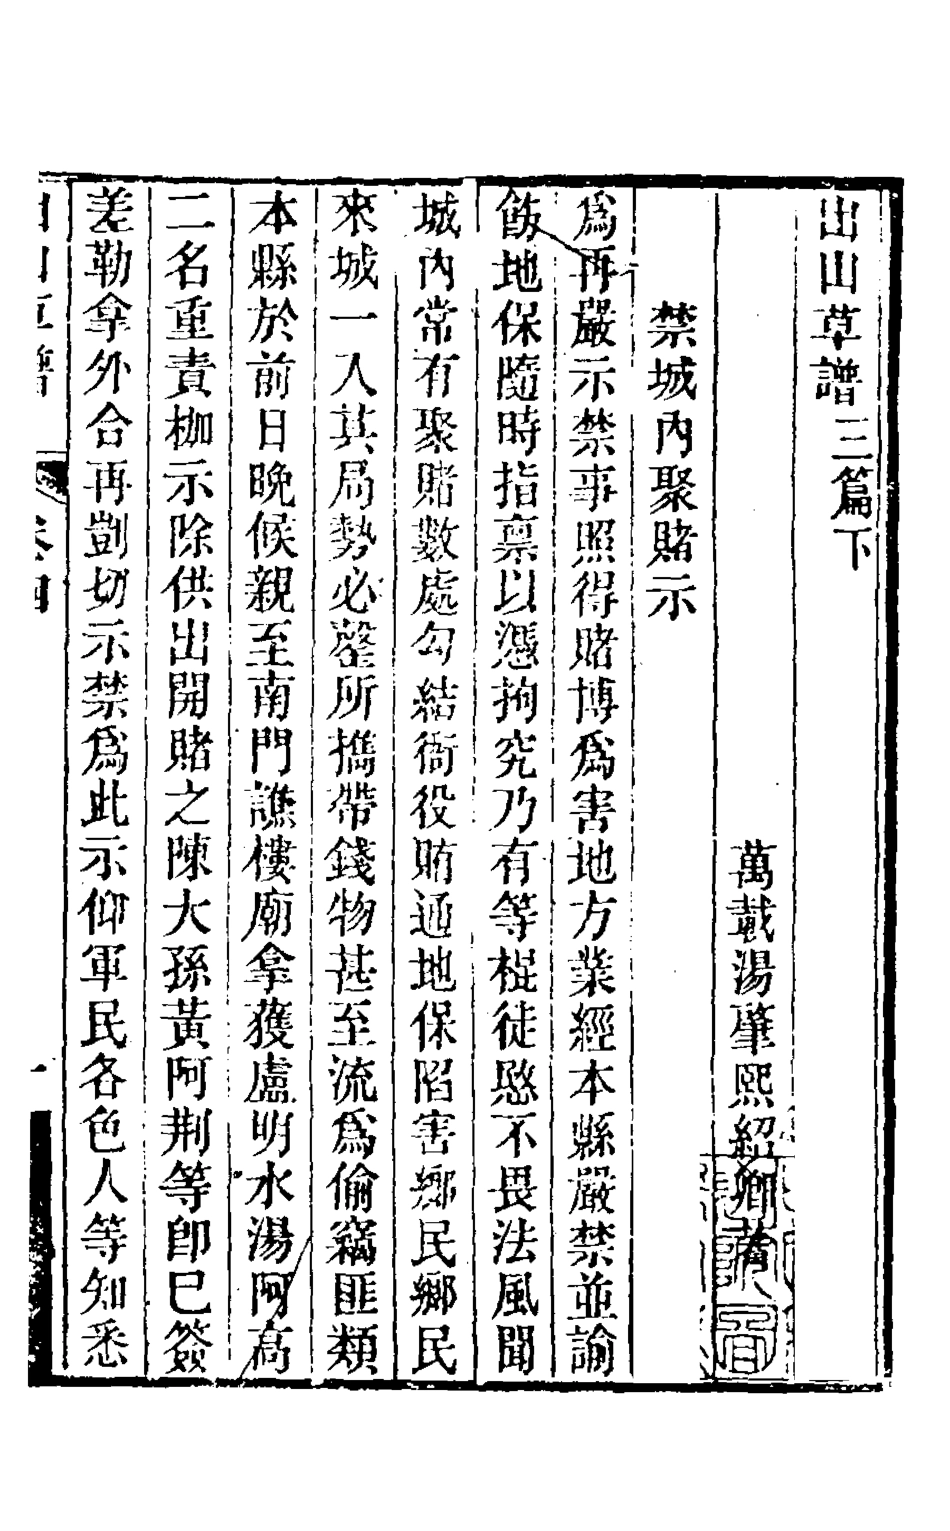 出山草譜三篇下
萬載湯肇熙紹卿著
禁城內聚賭示
爲再嚴示禁事照得賭博爲害地方業經本縣嚴禁並諭
飭地保隨時指禀以憑拘究乃有等棍徒愍不畏法風聞
城內常有聚賭數處勾結衙役賄通地保陷害鄉民鄉民
來城一入其局勢必罄所攜帶錢物甚至流爲偷竊匪類
本縣於前日晚候親至南門譙樓廟拿獲盧明水湯阿高
二名重責枷示除供出開賭之陳大孫黃阿荆等卽已簽
差勒拿外合再剴切示禁爲此示仰軍民各色人等知悉
出山草譜
卷四
一